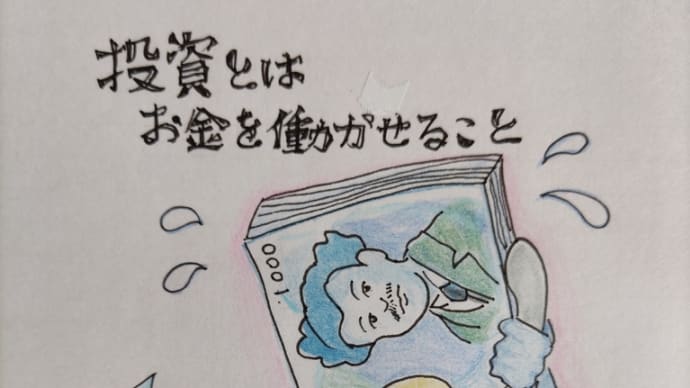 投資とは
お金を働かせること
1000